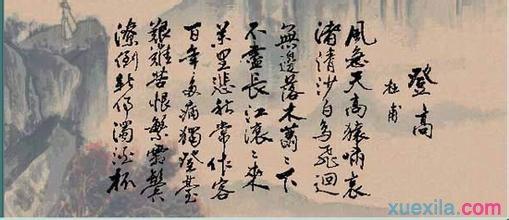 登高
杜甫
風急天高猿嘯哀
渚清沙白鸟飛迴
無邊落木蕭々下
不盡長江滾々來
萬里悲秋常作客
百年多病獨登臺
艱難苦恨繁霜鬢
潦倒新停濁酒杯
学习啦
xuexila.com